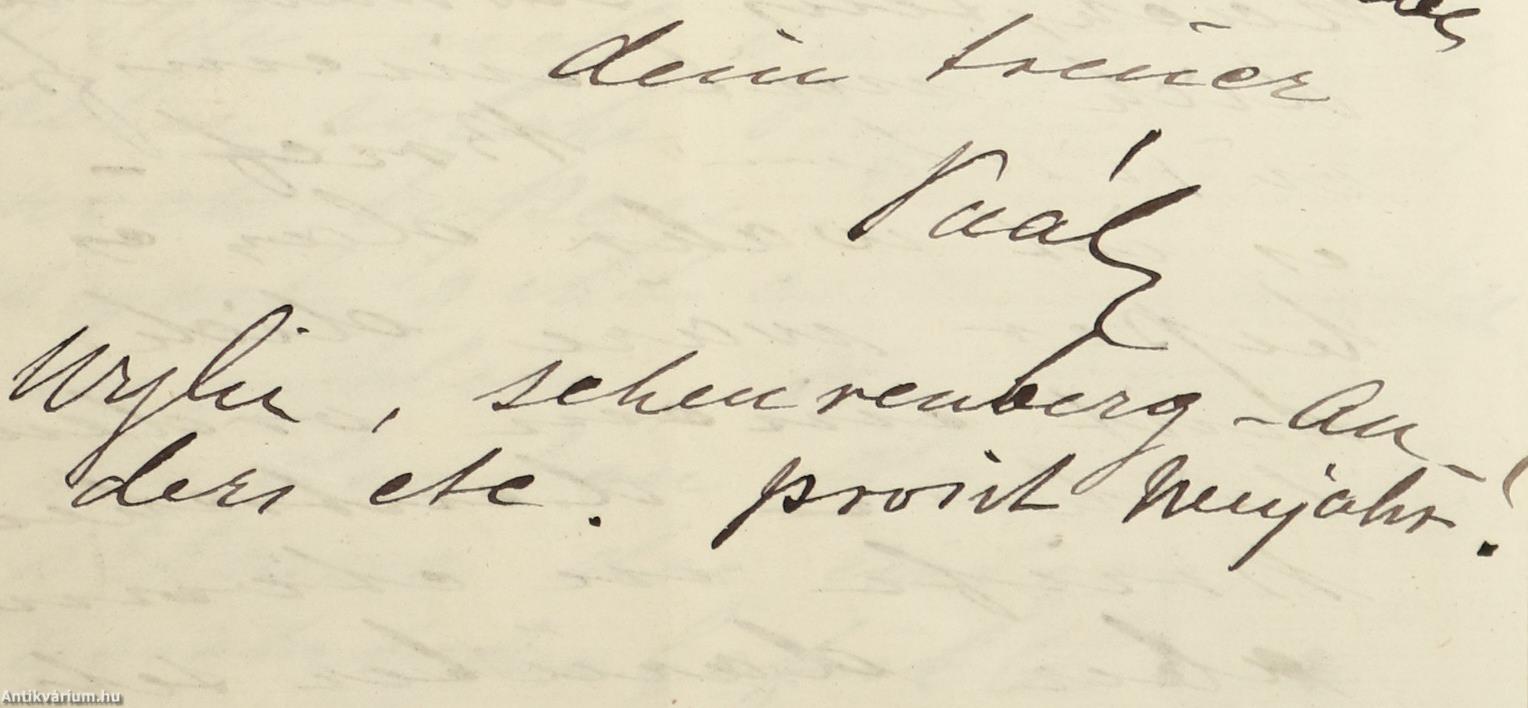 dein treuer
Paál
Wylie, scheurenberg-An-
ders etc. prosit Neujahr!
Antikvárium.hu